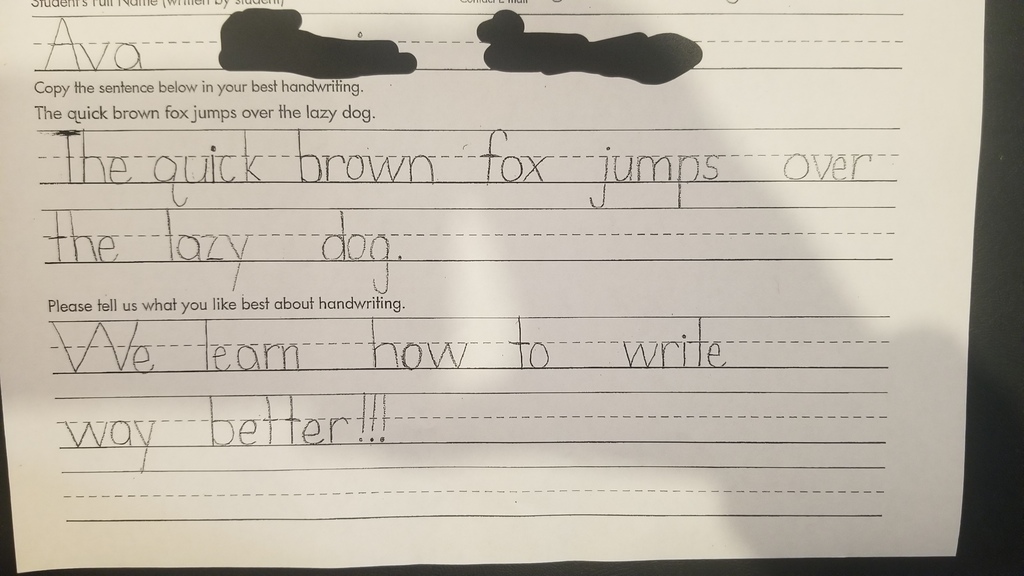 Student's Full Name (written by student)
Ava
Copy the sentence below in your best handwriting.
The quick brown fox jumps over the lazy dog.
The quick brown fox jumps over
the lazy dog.
Please tell us what you like best about handwriting.
We learn how to write
way better!!!